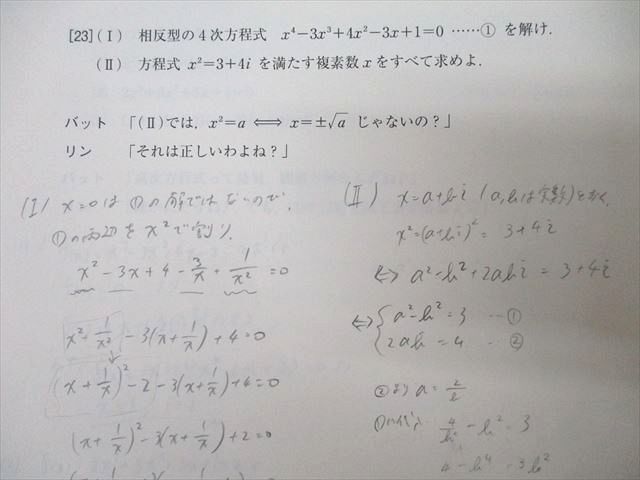 [23](Ⅰ) 相反型の4次方程式 x⁴−3x³+4x²−3x+1=0 ……① を解け.
(Ⅱ) 方程式 x²=3+4i を満たす複素数xをすべて求めよ.
バット 「(Ⅱ)では, x²=a ⟺ x=±√a じゃないの?」
リン 「それは正しいわよね?」
(Ⅰ) x=0は①の解ではないので,
①の両辺をx²で割り,
x² − 3x + 4 − 3/x + 1/x² = 0
x² + 1/x² − 3(x + 1/x) + 4 = 0
(x + 1/x)² − 2 − 3(x + 1/x) + 4 = 0
(x + 1/x)² − 3(x + 1/x) + 2 = 0
(Ⅱ) x = a+bi (a,bは実数)とおく,
x² = (a+bi)² = 3+4i
⇔ a² − b² + 2abi = 3+4i
⇔ { a² − b² = 3 …①
2ab = 4 …②
②より a = 2/b
①に代入 4/b² − b² = 3
4 − b⁴ = 3b²